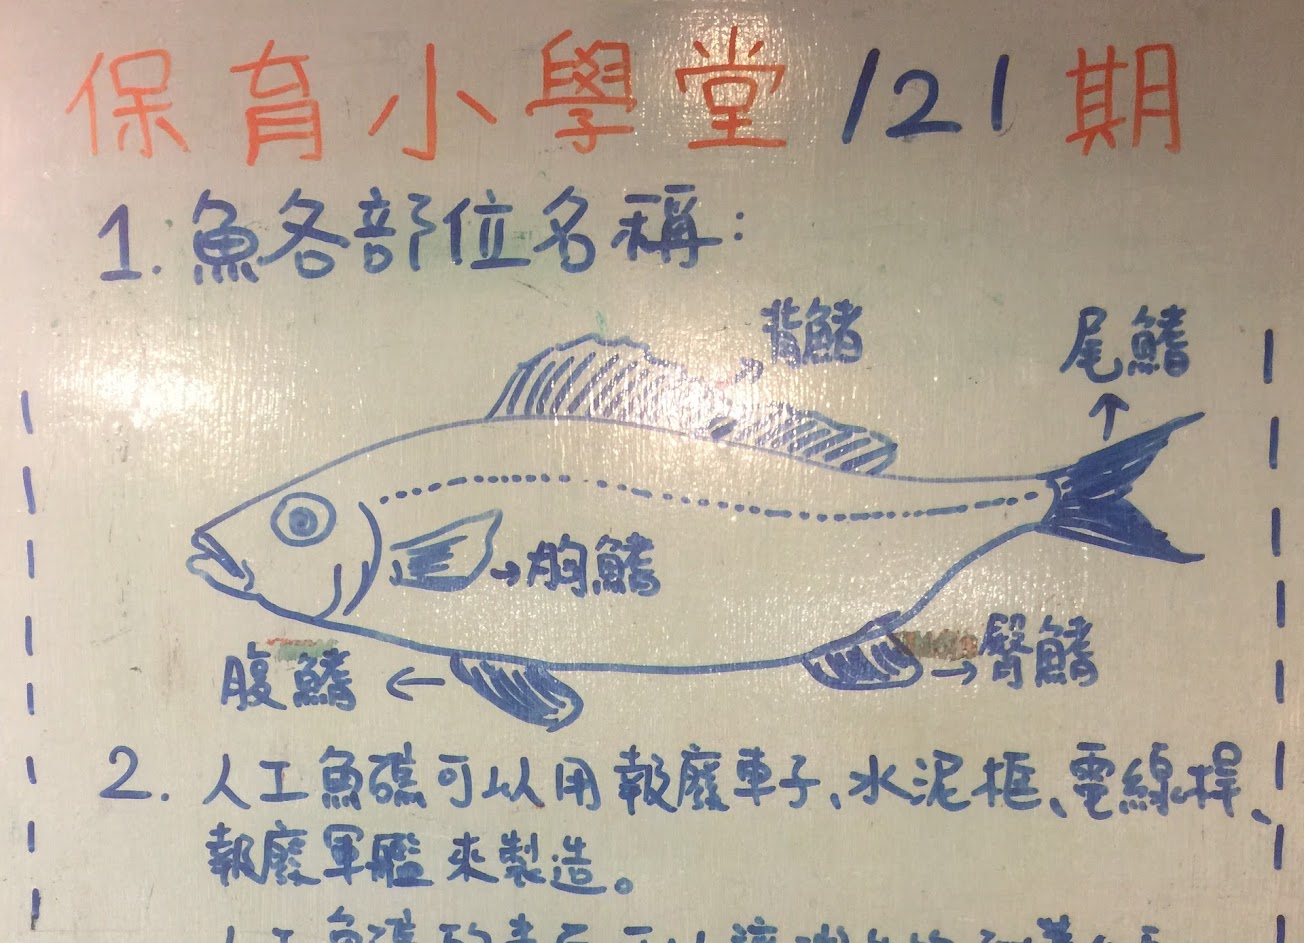 保育小學堂121期
1. 魚各部位名稱:
背鰭
尾鰭
胸鰭
腹鰭
臀鰭
2. 人工魚礁可以用報廢車子、水泥框、電線桿、
報廢軍艦來製造。
人工魚礁的表面可以